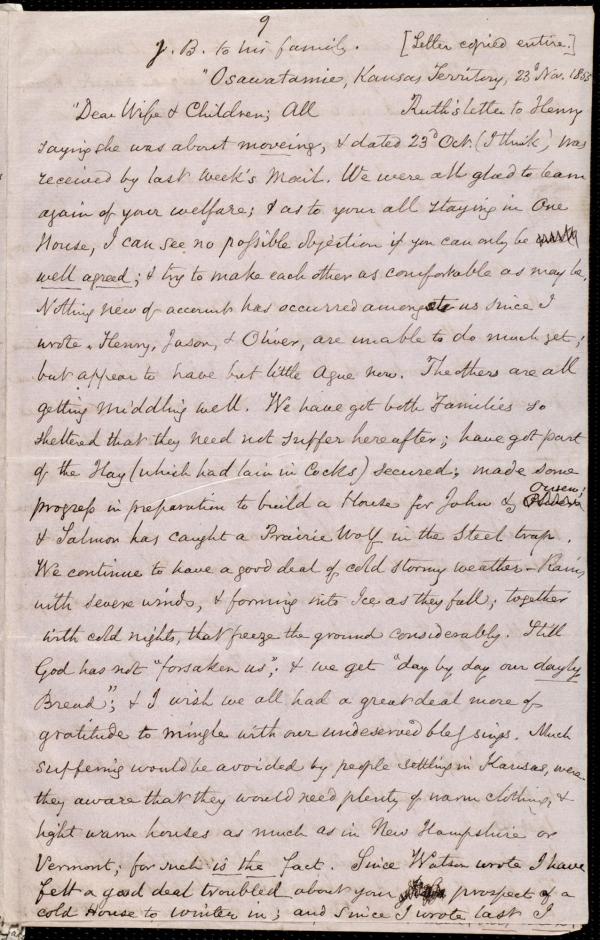 9
J. B. to his family. [Letter copied entire.]
"Osawatamie, Kansas Territory, 23d Nov. 1855
"Dear Wife & Children; All Ruth's letter to Henry
saying she was about moveing, & dated 23d Oct. (I think) was
received by last week's Mail. We were all glad to learn
again of your welfare; & as to your all staying in One
House, I can see no possible objection if you can only be
well agreed; & try to make each other as comfortable as may be.
Nothing new of account has occurred among us since I
wrote. Henry, Jason, & Oliver, are unable to do much yet;
but appear to have but little Ague now. The others are all
getting middling well. We have got both Families so
sheltered that they need not suffer hereafter; have got part
of the Hay (which had lain in Cocks) secured; made some
progress in preparation to build a House for John & Owen;
& Salmon has caught a Prairie Wolf in the Steel trap.
We continue to have a good deal of cold stormy weather – Rains
with severe winds, & forming into Ice as they fall; together
with cold nights, that freeze the ground considerably. Still
God has not "forsaken us"; & we get "day by day our dayly
Bread"; & I wish we all had a great deal more of
gratitude to mingle with our undeserved blessings. Much
suffering would be avoided by people settling in Kansas, were
they aware that they would need plenty of warm clothing, &
light warm houses as much as in New Hampshire or
Vermont; for such is the fact. Since Watson wrote I have
felt a good deal troubled about your prospect of a
cold House to winter in; and since I wrote last I